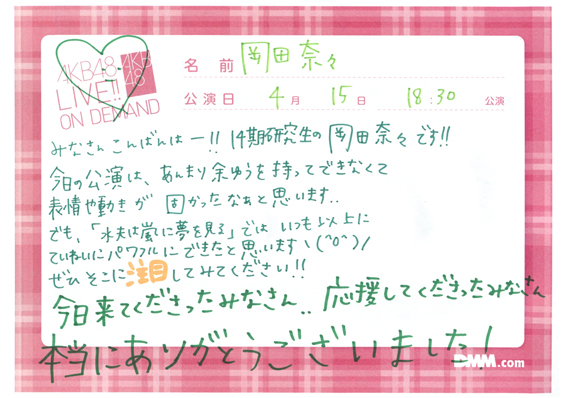 AKB48
LIVE!!
ON DEMAND
AKB
48
名 前 岡田 奈々
公演日 4月 15日 18:30 公演
みなさんこんばんはー!! 14期研究生の岡田奈々です!!
今日の公演は、あんまり余ゆうを持ってできなくて
表情や動きが固かったなぁと思います..
でも、「水夫は嵐に夢を見る」では いつも以上に
ていねいにパワフルにできたと思います\(^o^)/
ぜひそこに注目してみてください!!
今日来てくださったみなさん.. 応援してくださったみなさん
本当にありがとうございました!
DMM.com